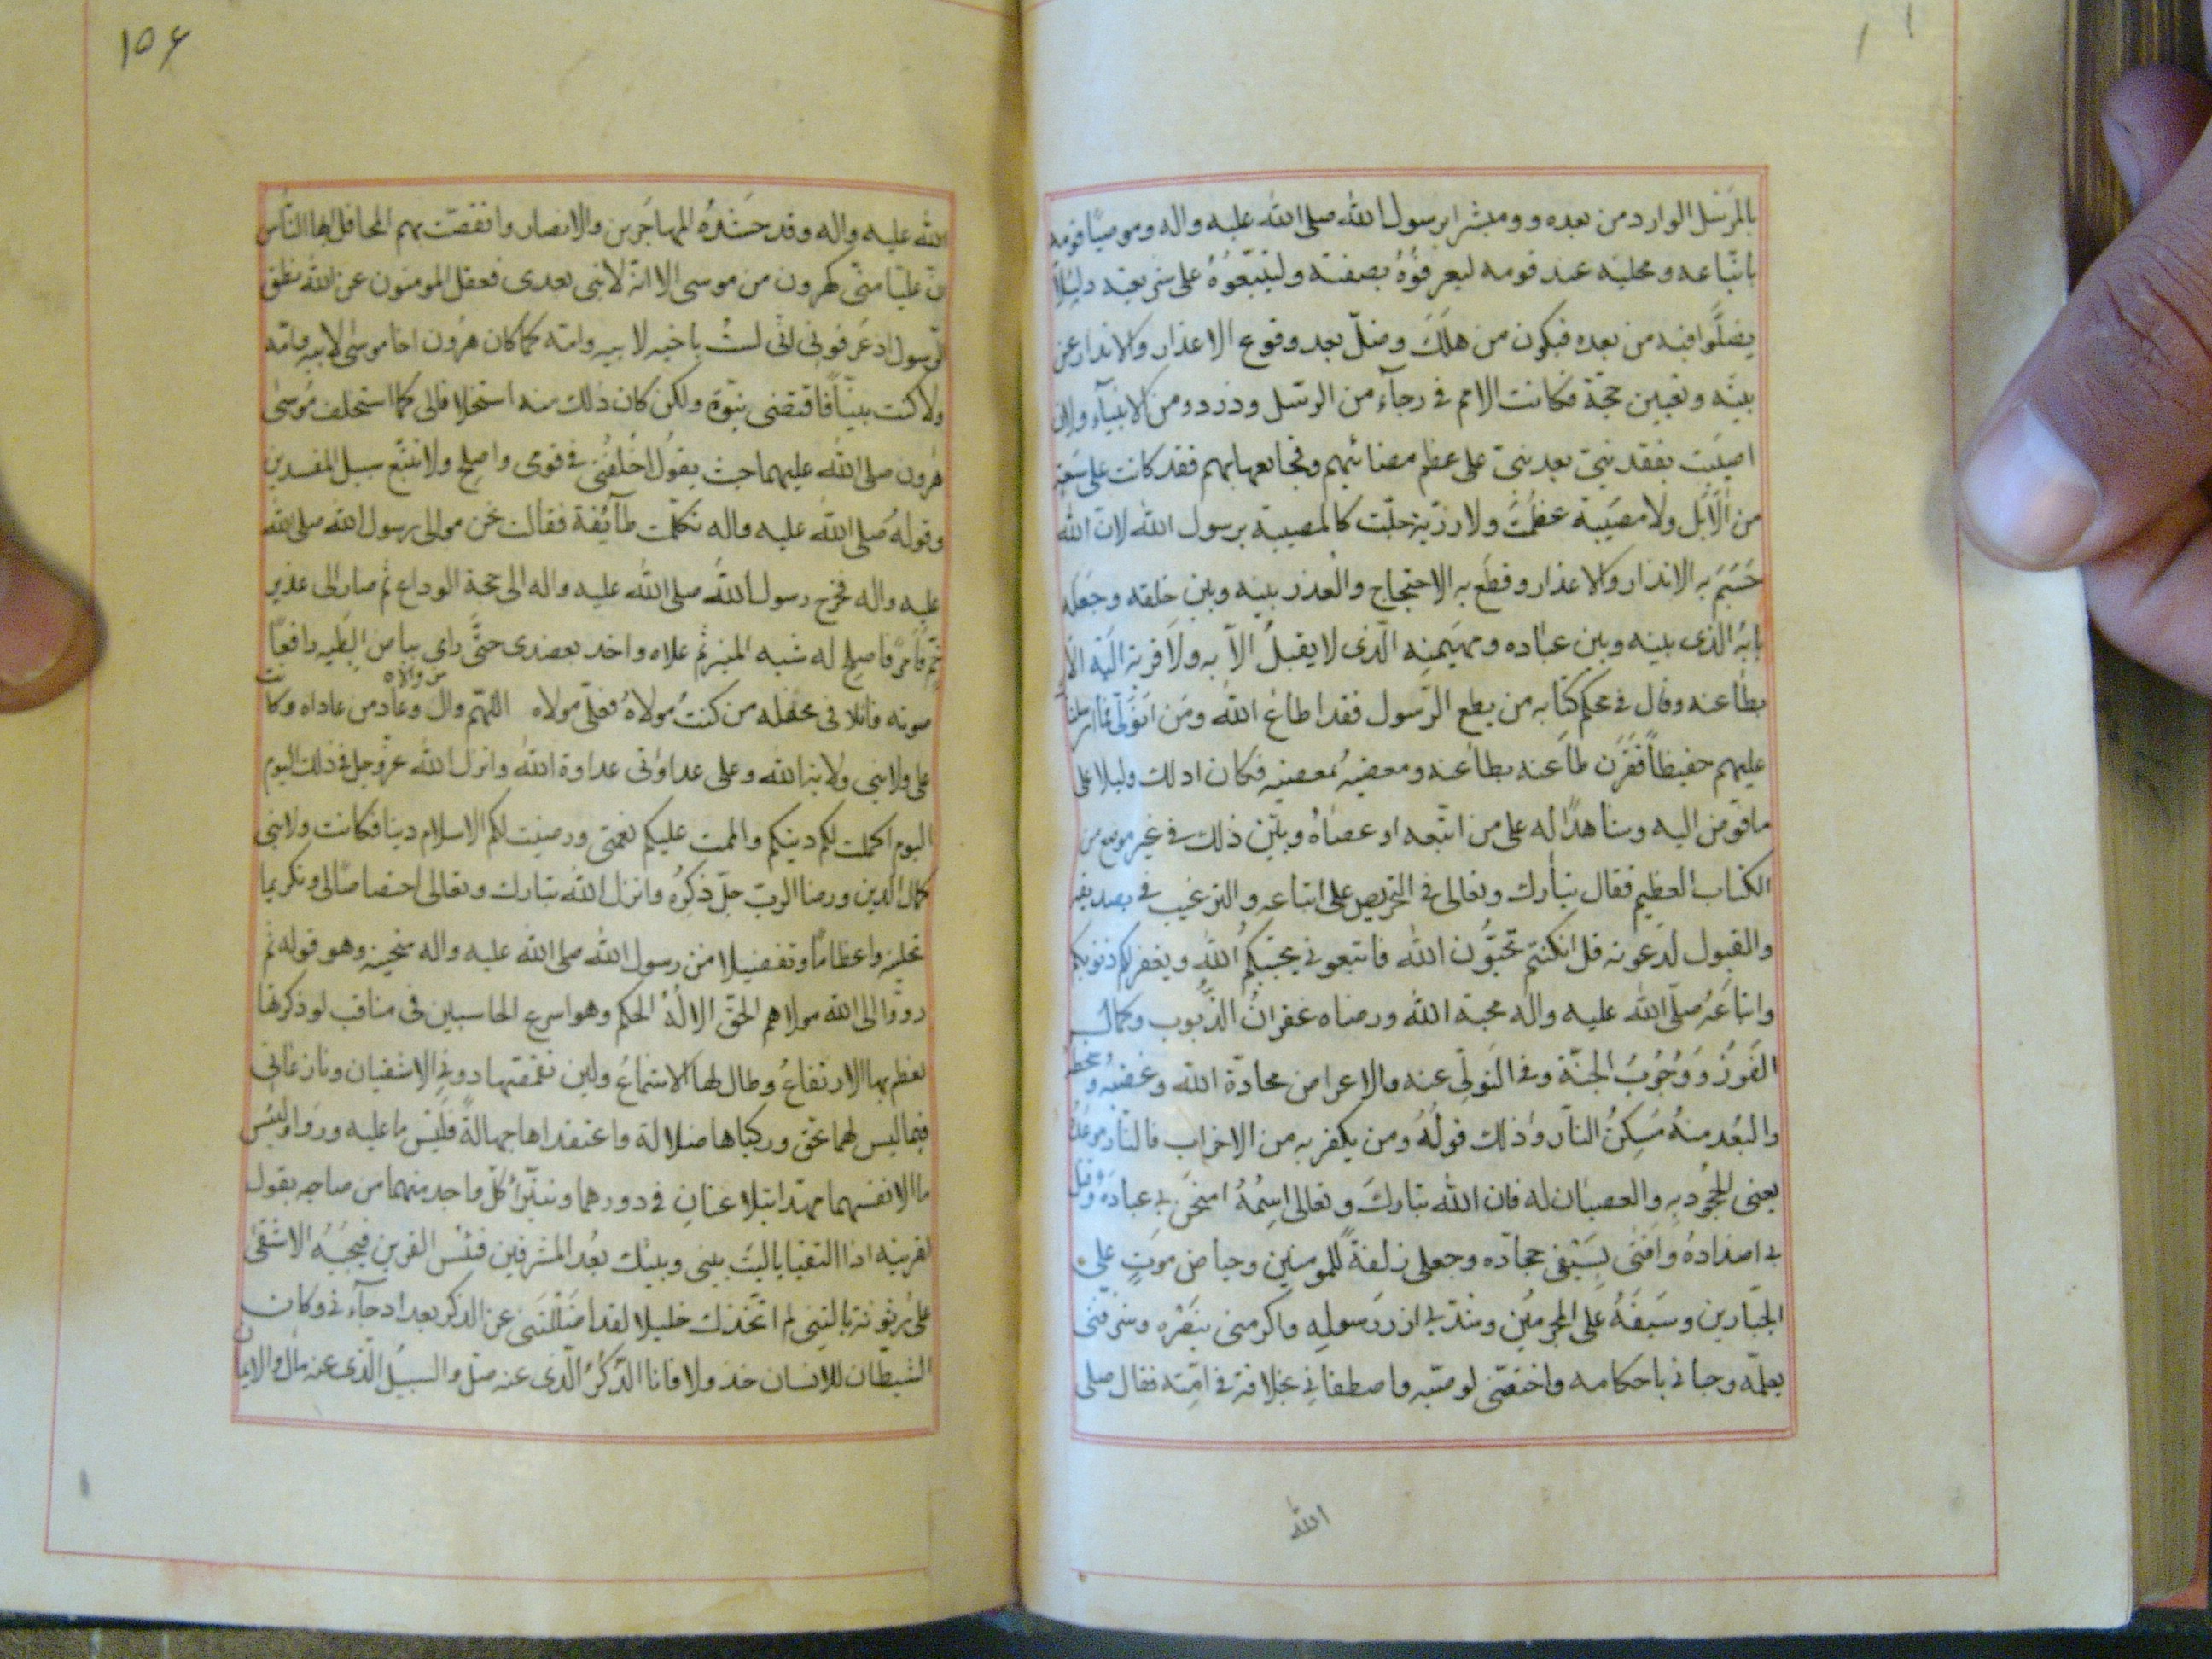 بالمرسل الوارد من بعده و ومبشرا برسول الله صلى الله عليه واله وموصيا قومه
باتباعه ومحليه عند قومه ليعرفوه بصفته وليتبعوه على شريعته
يضلوا فيه من بعده فيكون من هلك وضل بعد وقوع الاعذار والانذار عن
بينه وتعيين حجة فكانت الامم في رجاء من الرسل وورود من الانبياء
اصيبت بفقد نبي بعد نبي على عظم مصائبهم وفجايعها بهم فقد كانت على سعة
من الامل ولا مصيبة عظمت ولا رزية جلت كالمصيبة برسول الله لان الله
حسم به الانذار والاعذار وقطع به الاحتجاج والعذر بينه وبين خلقه وجعله
بابه الذى بينه وبين عباده ومهيمنه الذى لا يقبل الا به ولا قربة اليه الا
بطاعته وقال في محكم كتابه من يطع الرسول فقد اطاع الله ومن تولى فما ارسلناك
عليهم حفيظا فقرن طاعته بطاعته ومعصيه بمعصيه فكان ذلك دليلا على
ما فوض اليه وشاهدا له على من اتبعه او عصاه وبين ذلك في غير موضع من
الكتاب العظيم فقال تبارك وتعالى في التحريص على اتباعه والترغيب في تصديقه
والقبول لدعوته قل ان كنتم تحبون الله فاتبعوني يحببكم الله ويغفر لكم ذنوبكم
واتباعه صلى الله عليه واله محبة الله ورضاه غفران الذنوب وكمال
الفوز ووجوب الجنة وفي التولى عنه والاعراض محادة الله وغضبه وسخطه
والبعد منه مسكن النار وذلك قوله ومن يكفر به من الاحزاب فالنار موعده
يعنى الجحود به والعصيان له فان الله تبارك وتعالى اسمه امتحن بي عباده وقتل
بي اضداده وافنى بسيفى جحاده وجعلى زلفة للمومنين وحياض موت على
الجبارين وسيفه على المجرمين وشد بي ازر رسوله واكرمنى بنصره وشرفنى
بعلمه وحباني باحكامه واختصنى لوصيه واصطفاني بخلافة في امته فقال صلى
الله
١٥٤
الله عليه واله وقد حشده المهاجرين والانصار وانقصت بهم المحافل ايها الناس
ان عليا منى كهرون من موسى الا انه لا نبى بعدى فعقل المومنون عن الله نطق
الرسول اذ عرفونى انى لست باخيه لابيه وامه كما كان هرون اخا موسى لابيه وامه
ولا كنت نبيا فاقتضى نبوة ولكن كان ذلك منه استخلافا لى كما استخلف موسى
هرون صلى الله عليهما حيث يقول اخلفنى في قومى واصلح ولا تتبع سبيل المفسدين
وقوله صلى الله عليه واله تكلمت طآئفة فقالت نحن موالى رسول الله صلى الله
عليه واله فخرج رسول الله صلى الله عليه واله الى حجة الوداع ثم صار الى غدير
خم فامر فاصلح له شبه المنبر ثم علاه واخد بعضدى حتى راى بياض ابطيه رافعا
صوته قائلا في محفله من كنت مولاه فعلى مولاه اللهم وال من والاه وعاد من عاداه وكانت
على ولايتي ولاية الله وعلى عداوتى عداوة الله وانزل الله عز وجل في ذلك اليوم
اليوم اكملت لكم دينكم واتممت عليكم نعمتى ورضيت لكم الاسلام دينا فكانت ولايتى
كمال الدين ورضا الرب جل ذكره وانزل الله تبارك وتعالى اختصاصا لى وتكريما
نحلنيه واعظاما وتفضيلا من رسول الله صلى الله عليه واله منحنيه وهو قوله ثم
ردوا الى الله مولاهم الحق الا له الحكم وهو اسرع الحاسبين في مناقب لو ذكرتها
لعظم بها الارتفاع وطال لها الاستماع ولئن تقمصها دوني الاشقيان ونازعاني
فيما ليس لهما بحق وركباها ضلالة واعتقداها جهالة فلبئس ما عليه وردا ولبئس
ما لانفسهما مهدا يتلاعنان في دورهما ويتبرا كل واحد منهما من صاحبه يقول
لقرينه اذا التقيا ياليت بينى وبينك بعد المشرقين فبئس القرين فيجيبه الاشقى
على رثوثة ياليتنى لم اتخذك خليلا لقد اضللتنى عن الذكر بعد اذ جاءنى وكان
الشيطان للانسان خذولا فانا الذكر الذى عنه ضل والسبيل الذى عنه مال والايمان